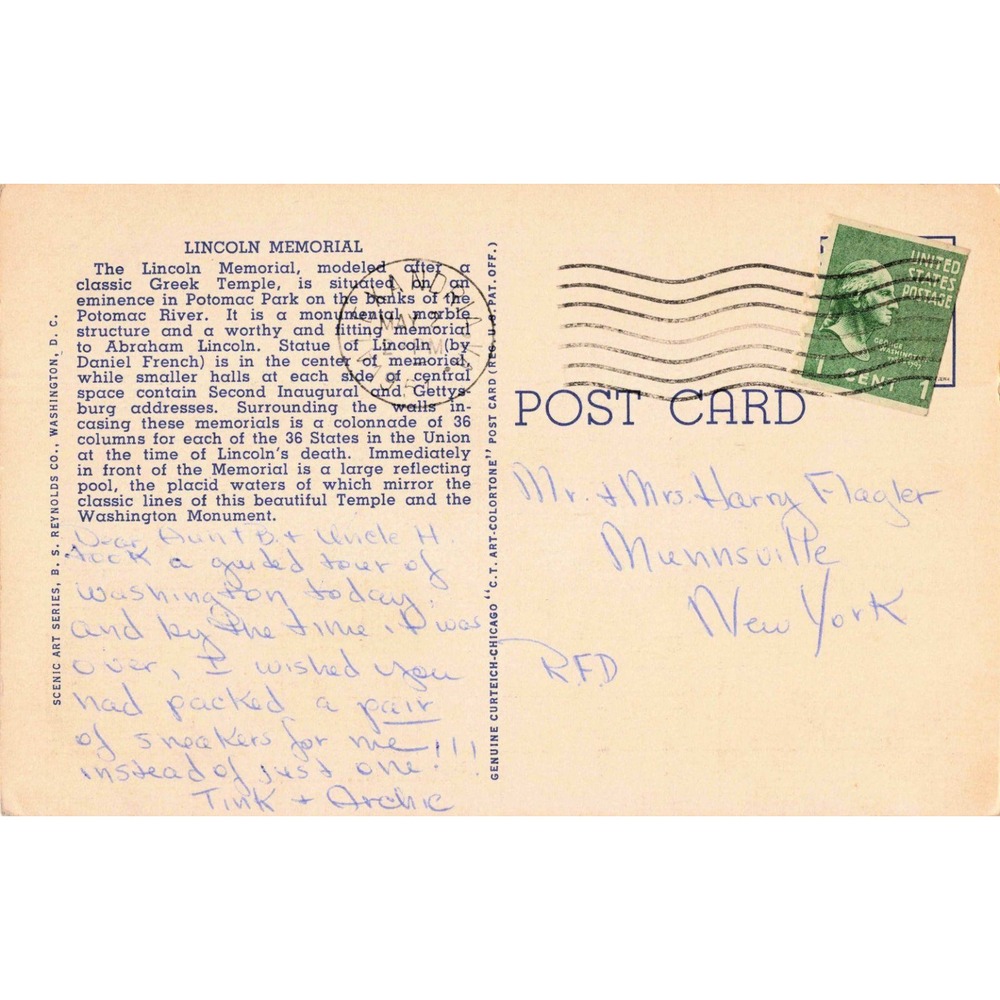 LINCOLN MEMORIAL
The Lincoln Memorial, modeled after a
classic Greek Temple, is situated on an
eminence in Potomac Park on the banks of the
Potomac River. It is a monumental marble
structure and a worthy and fitting memorial
to Abraham Lincoln. Statue of Lincoln (by
Daniel French) is in the center of memorial,
while smaller halls at each side of central
space contain Second Inaugural and Gettys-
burg addresses. Surrounding the walls in-
casing these memorials is a colonnade of 36
columns for each of the 36 States in the Union
at the time of Lincoln's death. Immediately
in front of the Memorial is a large reflecting
pool, the placid waters of which mirror the
classic lines of this beautiful Temple and the
Washington Monument.
Dear Aunt B. + Uncle H.
took a guided tour of
Washington today.
and by the time it was
over, I wished you
had packed a pair
of sneakers for me!!!
instead of just one!
Tink + Archie
SCENIC ART SERIES, B. S. REYNOLDS CO., WASHINGTON, D. C.
GENUINE CURTEICH-CHICAGO "C. T. ART-COLORTONE" POST CARD (REG. U. S. PAT. OFF.)
ALEXANDRIA
MAY
UNITED
STATES
POSTAGE
GEORGE
WASHINGTON
1 CENT 1
POST CARD
Mr. + Mrs. Harry Flagler
Munnsville
New York
RFD